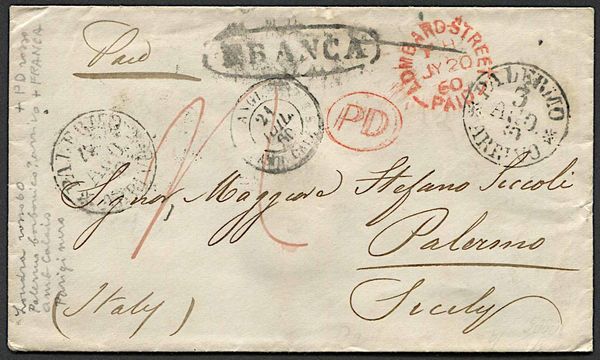 Paid
FRANCA
LOMBARD-STREET
JY 20
60
PAID
PD
PALERMO
3
AGO
ARRIVO
ANGL.
21
JUIL.
60
PALERMO
AGO
Signor Maggiore Stefano Siccoli
Palermo
(Italy)
Sicily
Londra rosso 60 + PD rosso
Palermo borbonico arrivo + FRANCA
amb Calais
Parigi nero